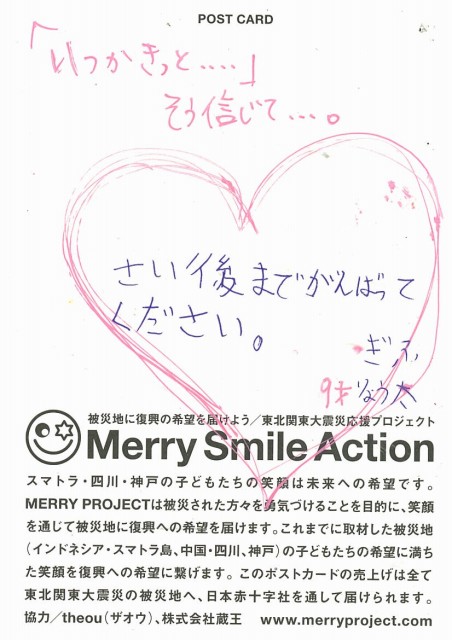 POST CARD
「いつかきっと‥‥」
そう信じて…。
さい後までがんばって
ください。
ぎふ
9才 りょう太
被災地に復興の希望を届けよう／東北関東大震災応援プロジェクト
Merry Smile Action
スマトラ・四川・神戸の子どもたちの笑顔は未来への希望です。
MERRY PROJECTは被災された方々を勇気づけることを目的に、笑顔
を通じて被災地に復興への希望を届けます。これまでに取材した被災地
（インドネシア・スマトラ島、中国・四川、神戸）の子どもたちの希望に満ち
た笑顔を復興への希望に繋げます。このポストカードの売上げは全て
東北関東大震災の被災地へ、日本赤十字社を通して届けられます。
協力／theou（ザオウ）、株式会社蔵王 www.merryproject.com